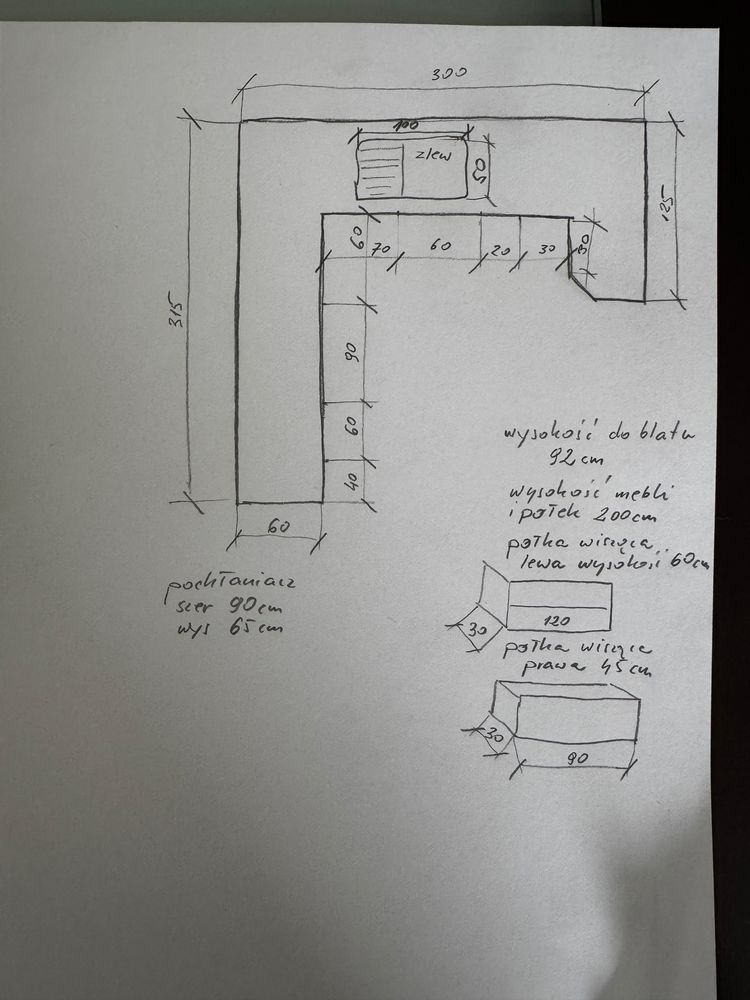 300
100
zlew
50
125
315
60
70
60
20
30
30
90
60
40
60
wysokość do blatu
92 cm
wysokość mebli
i połek 200cm
połka wisząca
lewa wysokość 60cm
pochłaniacz
szer 90cm
wys 65cm
120
30
połka wisząca
prawa 45cm
30
90